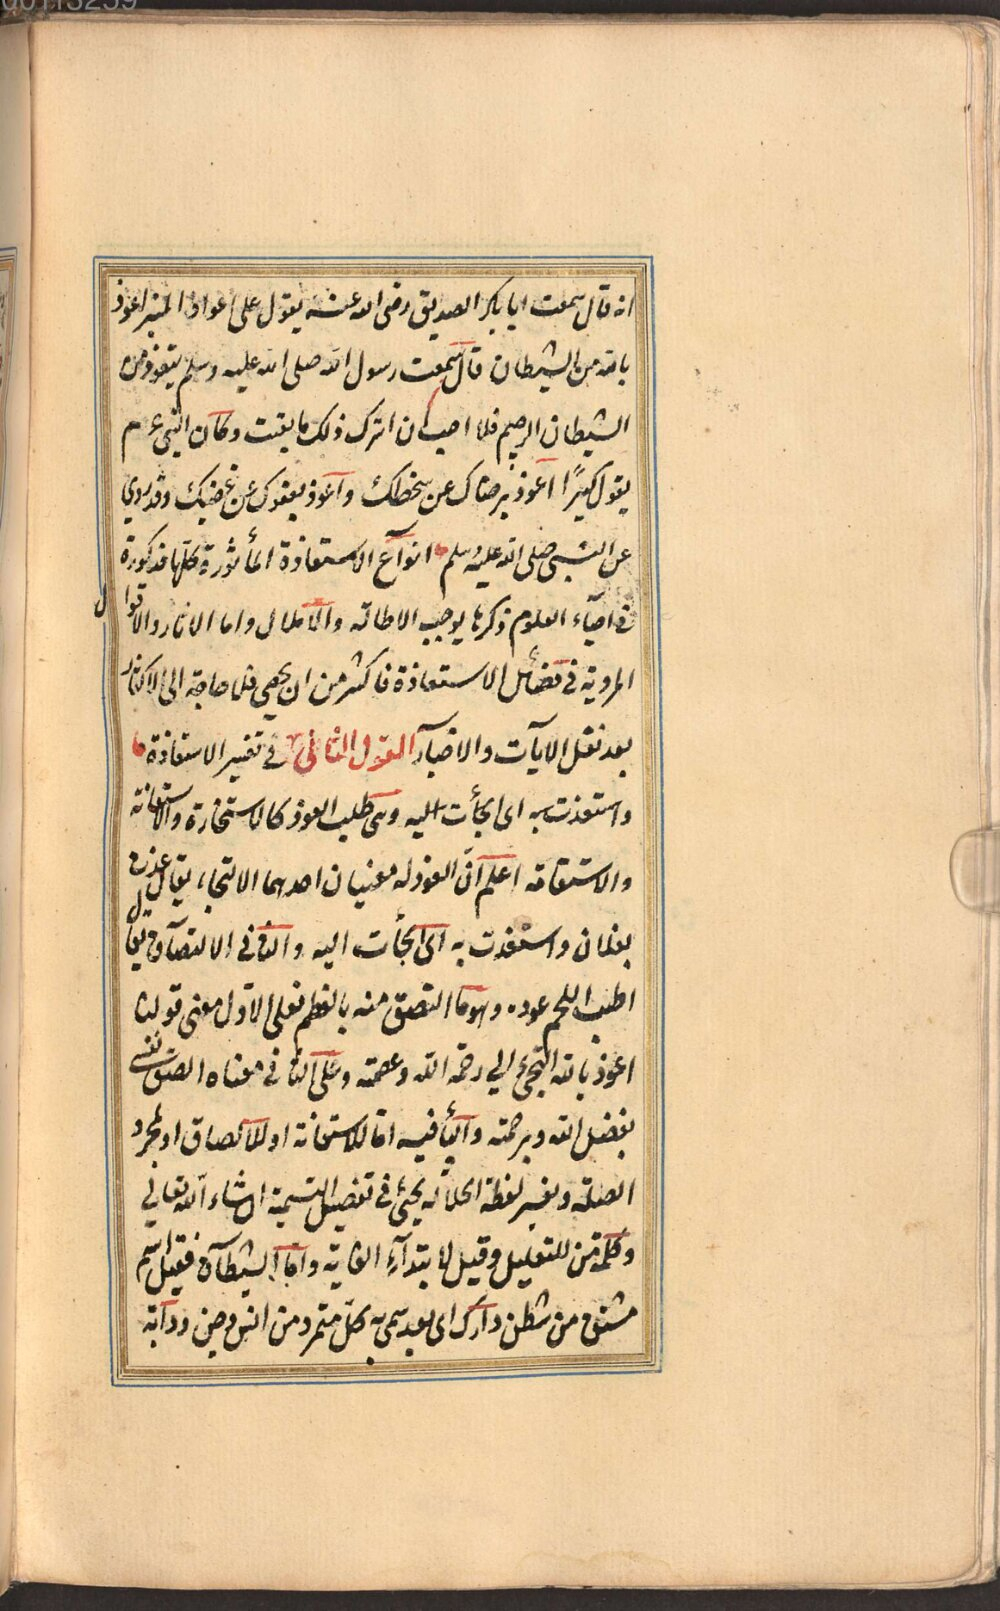 انه قال سمعت ابا بكر الصديق رضى الله عنه يقول على اعواد المنبر اعوذ
بالله من الشيطان قال سمعت رسول الله صلى الله عليه وسلم يتعوذ من
الشيطان الرجيم فلا احب ان اترك ذلك ما بقيت وكان النبى ءم
يقول كثيرًا اعوذ برضاك عن سخطك واعوذ بعفوك عن غضبك وقد روى
عن النبى صلى الله عليه وسلم انواع الاستعاذة المأثورة كلها مذكورة
فى احياء العلوم ذكرها يوجب الاطالة والاملال واما الاثار والاقوال
المروية فى فضائل الاستعاذة فاكثر من ان يحصى فلا حاجة الى الاكثار
بعد نقل الايات والاخبار القول الثانى فى تفسير الاستعاذة
واستعذت به اى لجأت اليه وهى طلب العوذ كالاستخارة والاستعانة
والاستقامة اعلم انّ العوذ له معنيان احدهما الالتجاء يقال عذت
بفلان واستعذت به اى لجأت اليه والثانى الالتصاق يقال
اطيب اللحم عوده وهو ما التصق منه بالعظم فعلى الاول معنى قولنا
اعوذ بالله التجئ الى رحمة الله وعصمته وعلى الثانى معناه الصق نفسى
بفضل الله وبرحمته والباء فيه اما للاستعانة او للالصاق او لمجرد
الصلة وتفسير لفظة الجلالة يجئ فى تفصيل التسمية ان شاء الله تعالى
وكلمة من للتعليل وقيل لابتداء الغاية واما الشيطان فقيل اسم
مشتق من شطن دارك اى بعد سمى به كل متمرد من انس وجن ودابة